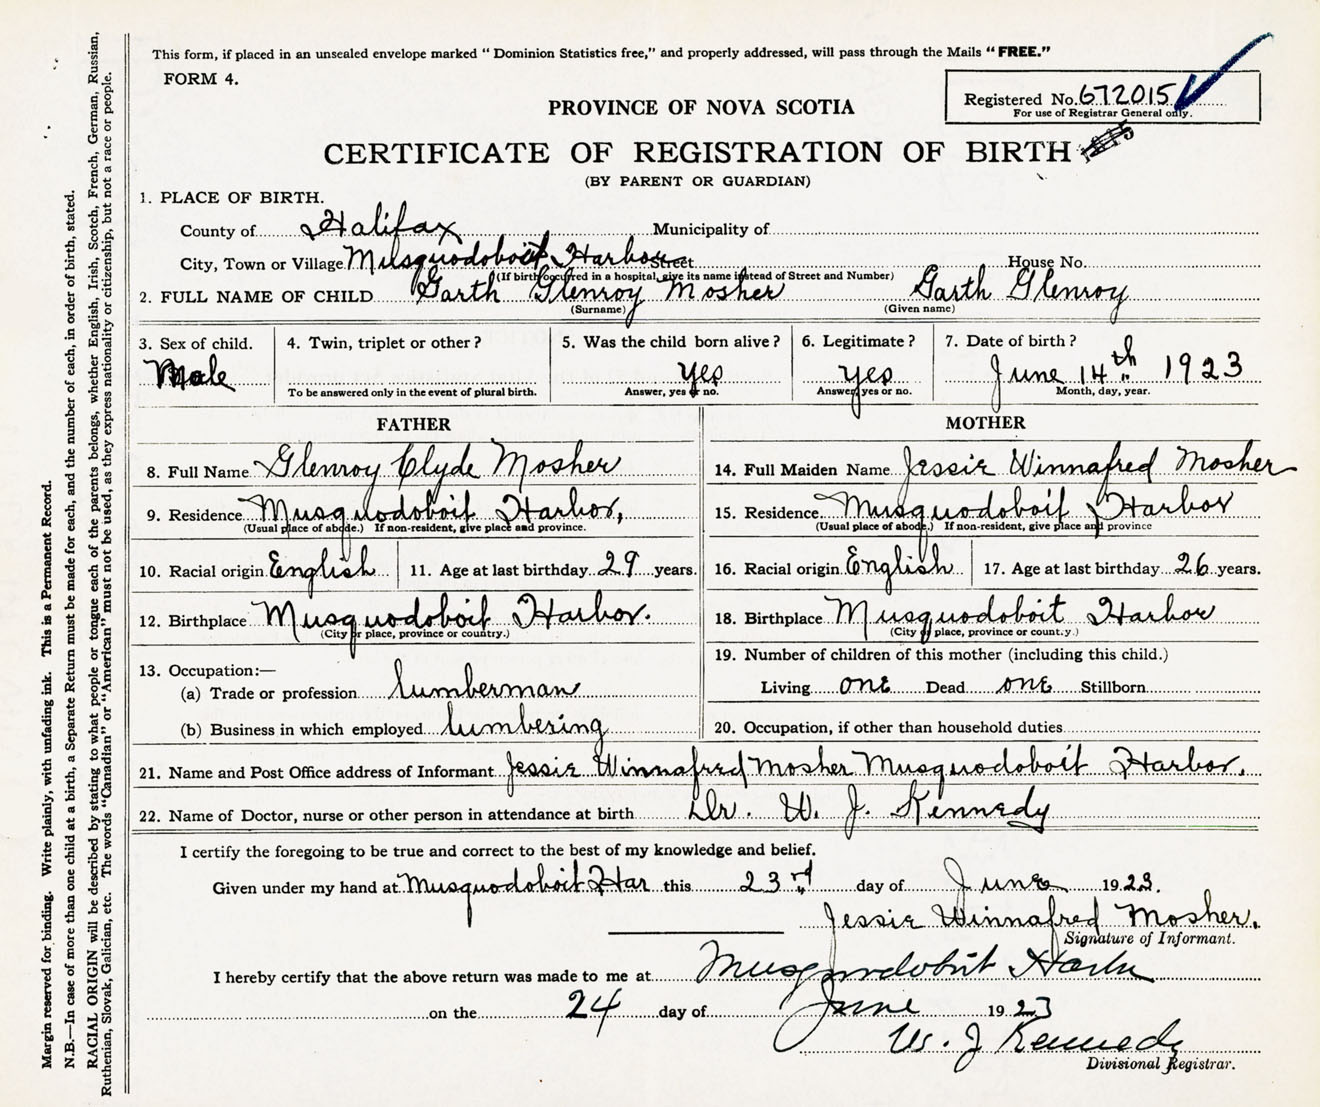 This form, if placed in an unsealed envelope marked “ Dominion Statistics free,” and properly addressed, will pass through the Mails “ FREE.”
FORM 4.
Registered No. 672015
For use of Registrar General only.
PROVINCE OF NOVA SCOTIA
CERTIFICATE OF REGISTRATION OF BIRTH
(BY PARENT OR GUARDIAN)
1. PLACE OF BIRTH.
County of Halifax Municipality of
City, Town or Village Musquodoboit Harbor Street House No.
(If birth occurred in a hospital, give its name instead of Street and Number)
2. FULL NAME OF CHILD Garth Glenroy Mosher Garth Glenroy
(Surname) (Given name)
3. Sex of child. 4. Twin, triplet or other? 5. Was the child born alive? 6. Legitimate? 7. Date of birth?
Male yes yes June 14th 1923
To be answered only in the event of plural birth. Answer, yes or no. Answer, yes or no. Month, day, year.
FATHER MOTHER
8. Full Name Glenroy Clyde Mosher 14. Full Maiden Name Jessie Winnafred Mosher
9. Residence Musquodoboit Harbor, 15. Residence Musquodoboit Harbor
(Usual place of abode.) If non-resident, give place and province. (Usual place of abode.) If non-resident, give place and province
10. Racial origin English 11. Age at last birthday 29 years. 16. Racial origin English 17. Age at last birthday 26 years.
12. Birthplace Musquodoboit Harbor. 18. Birthplace Musquodoboit Harbor
(City or place, province or country.) (City or place, province or count.y.)
13. Occupation:— 19. Number of children of this mother (including this child.)
(a) Trade or profession lumberman Living one Dead one Stillborn
(b) Business in which employed lumbering 20. Occupation, if other than household duties
21. Name and Post Office address of Informant Jessie Winnafred Mosher Musquodoboit Harbor.
22. Name of Doctor, nurse or other person in attendance at birth Dr. W. J. Kennedy
I certify the foregoing to be true and correct to the best of my knowledge and belief.
Given under my hand at Musquodoboit Har this 23rd day of June 1923.
Jessie Winnafred Mosher.
Signature of Informant.
I hereby certify that the above return was made to me at Musquodoboit Harbor
on the 24 day of June 1923
W. J Kennedy
Divisional Registrar.
Margin reserved for binding. Write plainly, with unfading ink. This is a Permanent Record.
N.B.—In case of more than one child at a birth, a Separate Return must be made for each, and the number of each, in order of birth, stated.
RACIAL ORIGIN will be described by stating to what people or tongue each of the parents belongs, whether English, Irish, Scotch, French, German, Russian,
Ruthenian, Slovak, Galician, etc. The words “Canadian” or “American” must not be used, as they express nationality or citizenship, but not a race or people.